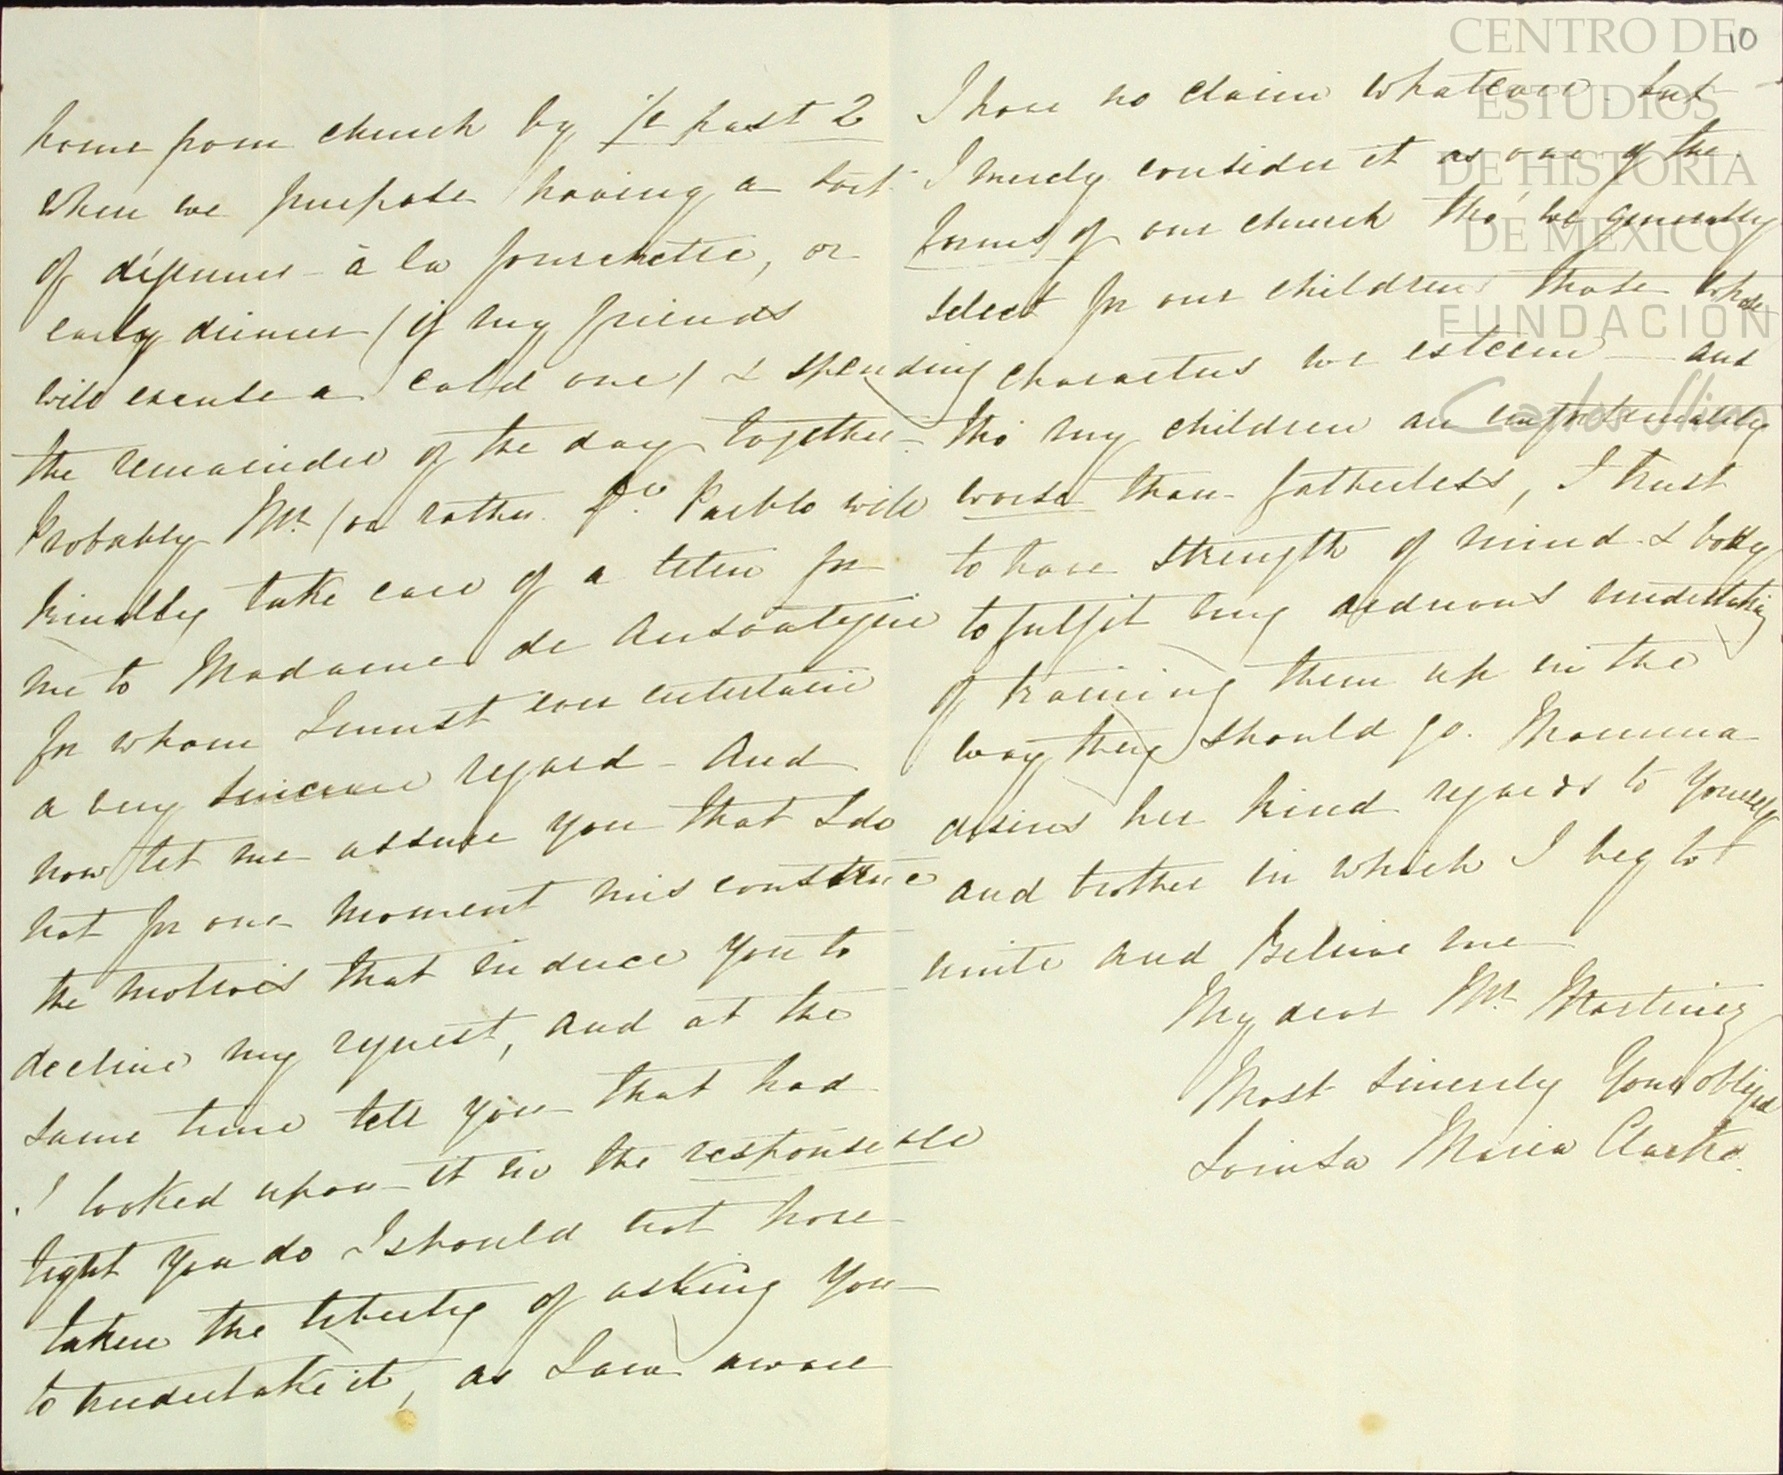 home from church by ½ past 2
when we purpose having a sort
of déjeuner à la fourchette, or
early dinner (if my friends
will excuse a cold one) & spending
the remainder of the day together.
Probably Mr. (or rather Dn. Pablo will
kindly take care of a letter for
me to Madame de
for whom I must ever entertain
a very sincere regard - And
now let me assure you that I do
not for one moment misconstrue
the motives that induce you to
decline my request, and at the
same time tell you that had
I looked upon it in the responsible
light you do I should not have
taken the liberty of asking you
to undertake it, as I am aware
I have no claim whatever but
I merely consider it as one of the
forms of our church tho' we generally
select for our children those whose
characters we esteem - and
tho' my children are unfortunately
worse than fatherless, I trust
to have strength of mind & body
to fulfil my arduous undertaking
of training them up in the
way they should go. Mamma
desires her kind regards to yourself
and brother in which I beg to
unite and Believe me
My dear Mr. Martinez
Most sincerely Your obliged
Louisa Maria Clarke.
10
CENTRO DE
ESTUDIOS
DE HISTORIA
DE MÉXICO
FUNDACIÓN
Carlos Slim